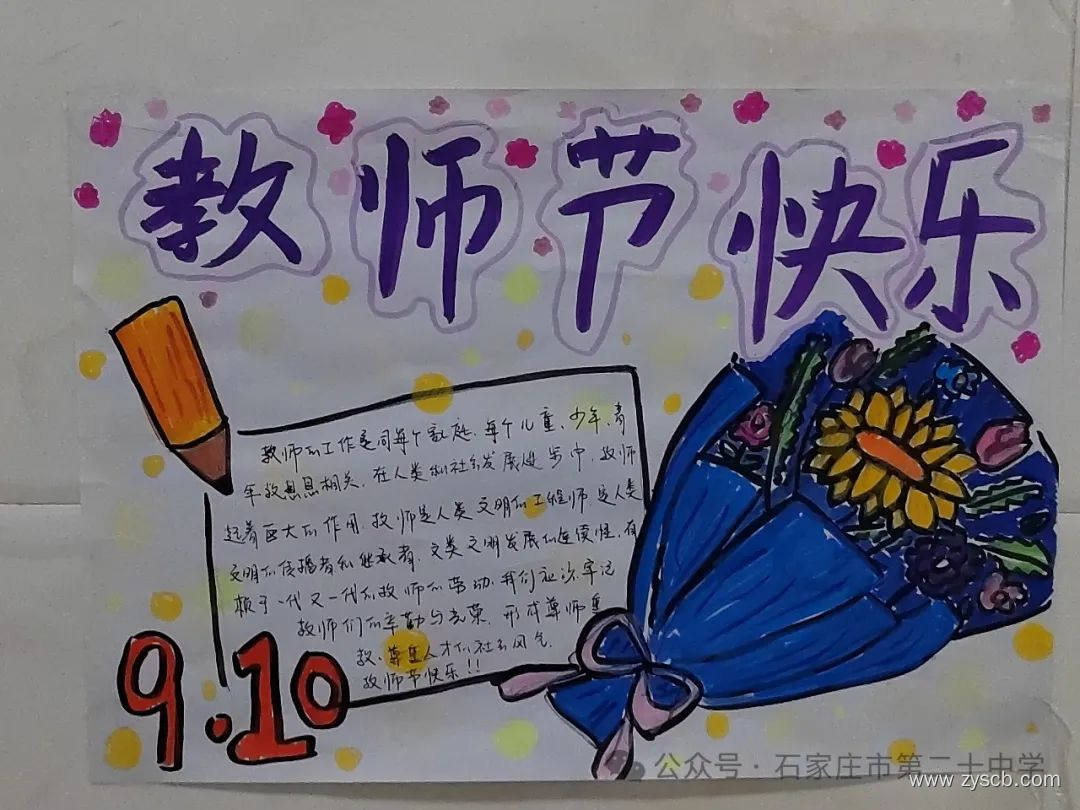 教师节快乐
教师的工作是同每个家庭、每个儿童、少年、青
年教息息相关,在人类和社会发展进步中,教师
起着巨大的作用,教师是人类文明的工程师,是人类
文明的传播者和继承者,文类文明发展的连续性,有
赖于一代又一代的教师的劳动,我们应该牢记
教师们的辛勤与光荣,形成尊师重
教、尊重人才的社会风气.
教师节快乐!!
9.10
公众号·石家庄市第二十中学
www.zyscb.com